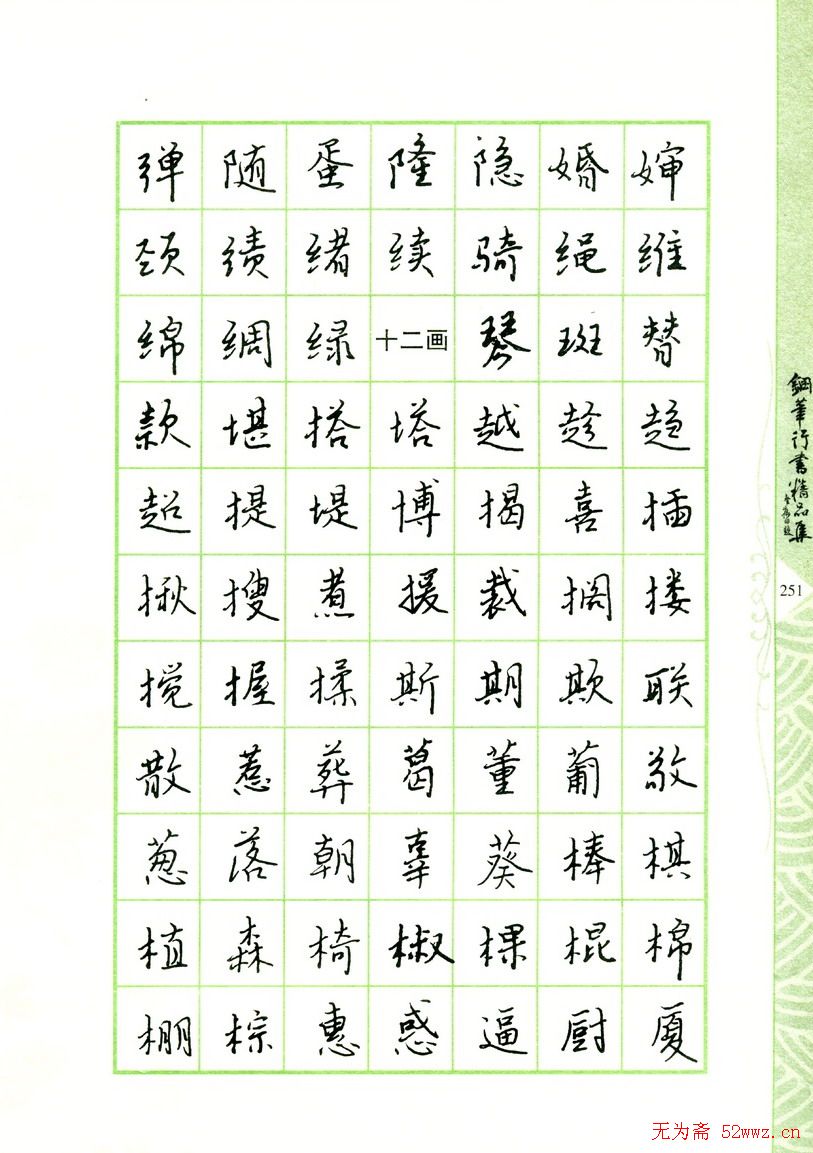 弹 随 蛋 隆 隐 婚 婶
颈 绩 绪 续 骑 绳 维
绵 绸 绿 十二画 琴 斑 替
款 堪 搭 塔 越 趁 趋
超 提 堤 博 揭 喜 插
揪 搜 煮 援 裁 搁 搂
搅 握 揉 斯 期 欺 联
散 惹 葬 葛 董 葡 敬
葱 落 朝 辜 葵 棒 棋
植 森 椅 椒 棵 棍 棉
棚 棕 惠 惑 逼 厨 厦
鋼筆行書精品集
251
无为斋 52wwz.cn